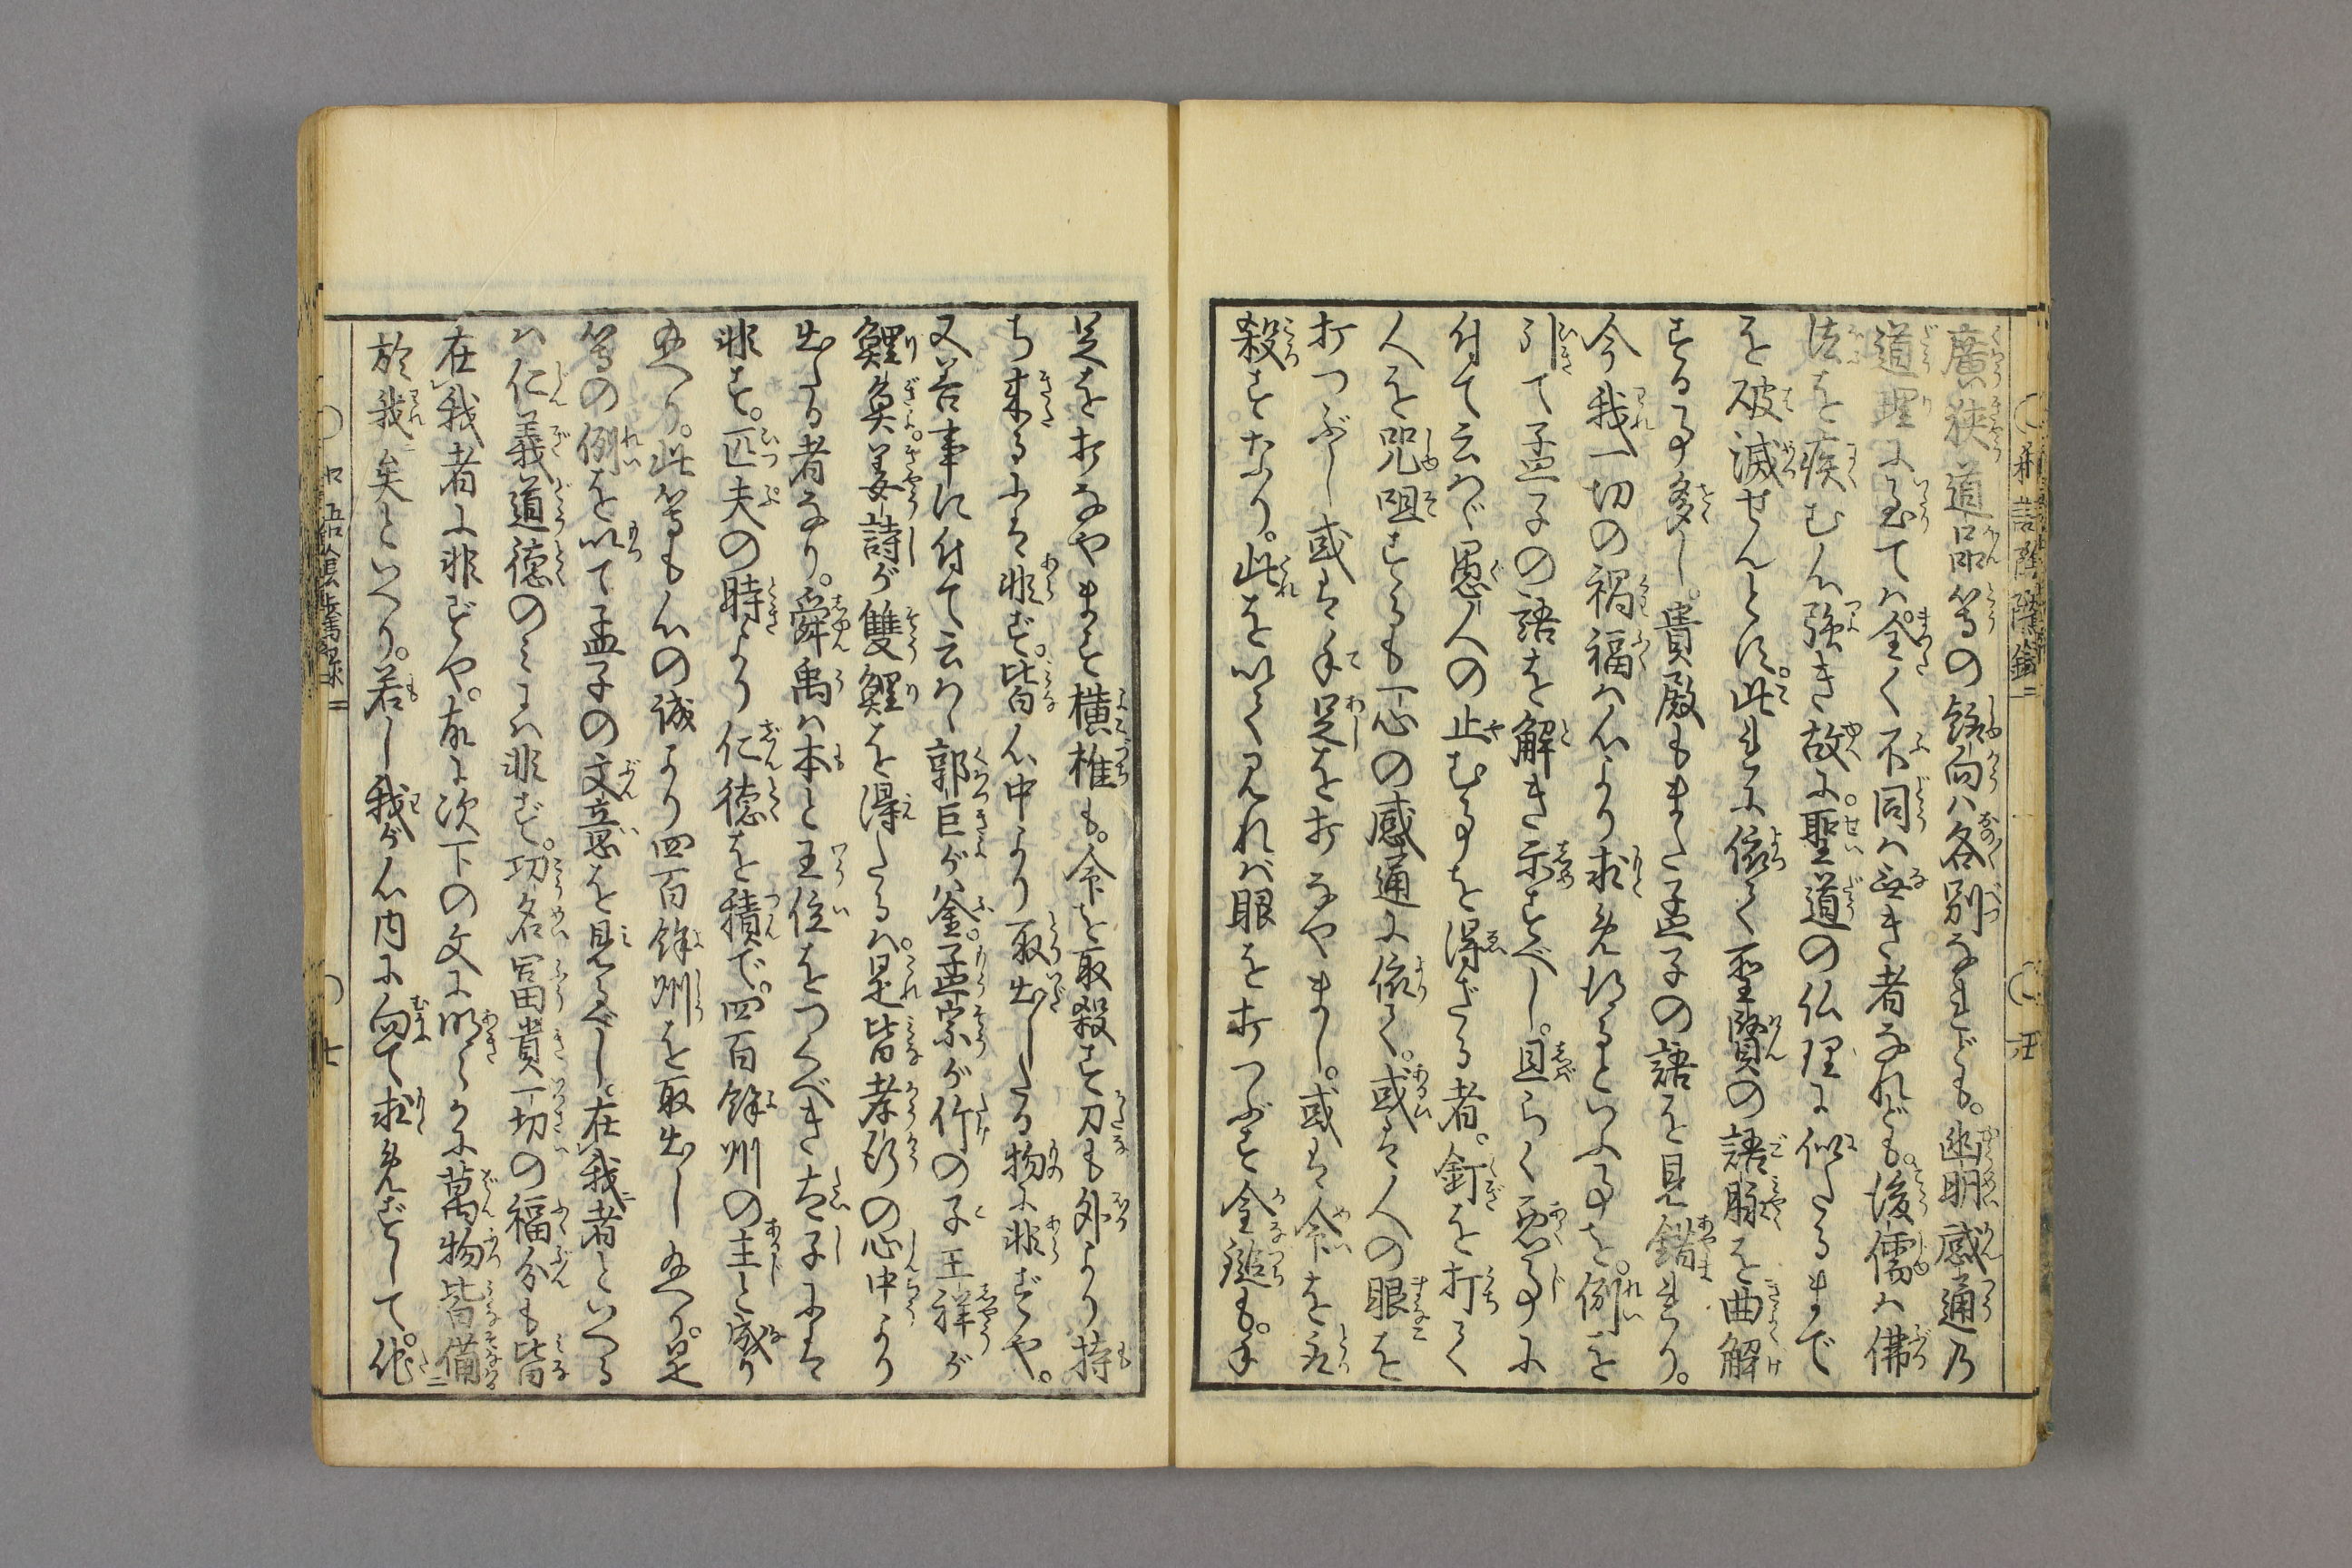 廣狭道品等の趣向ハ各別なれども。幽明感通乃
道理に至てハ全く不同ハ無き者なれども。後儒ハ佛
法を疾む心強き故に。聖道の仏理に似たるまで
を破滅せんとす。此れに依て聖賢の語脉を曲解
する事多し。貴殿もまた孟子の語を見錯まれり。
今我一切の禍福ハ心より求め得るといふ事を。例を
引て孟子の語を解き示すべし。且らく悪事に
付て云ハヾ愚人の止む事を得ざる者。釘を打て
人を咒咀するも一心の感通に依て。或は人の眼を
打つぶし或は手足を打なやまし。或は命を取
殺すなり。此を以て見れバ眼を打つぶす金鎚も。手
足を打なやます横椎も。命を取殺す刀も外より持
ち来るには非ず。皆心中より取出したる物に非ずや。
又善事に付て云ハヾ郭巨が釜。孟宗が竹の子王祥が
鯉魚。姜詩が雙鯉を得たるハ。是皆孝行の心中より
出たる者なり。舜禹ハ本と王位をつぐべき太子には
非ず。匹夫の時より仁徳を積で。四百餘州の主と成り
給へり。此等も心の誠より四百餘州を取出し給へり。是
等の例を以て孟子の文意を見るべし。在我者といへる
ハ仁義道徳のミにハ非ず。功名冨貴一切の福分も皆
在我者に非ずや。故に次下の文に明らかに萬物皆備
於我矣といへり。若し我が心内に向て求めずして。他